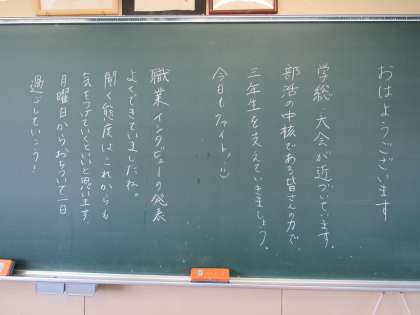 おはようございます
学総大会が近づいています。
部活の中核である皆さんの力で、
三年生を支えていきましょう。
今日もファイト!
職業インタビューの発表
よくできていましたね。
聞く態度はこれからも
気をつけていくといいと思います。
月曜日からおちついて一日
過ごしていこう!